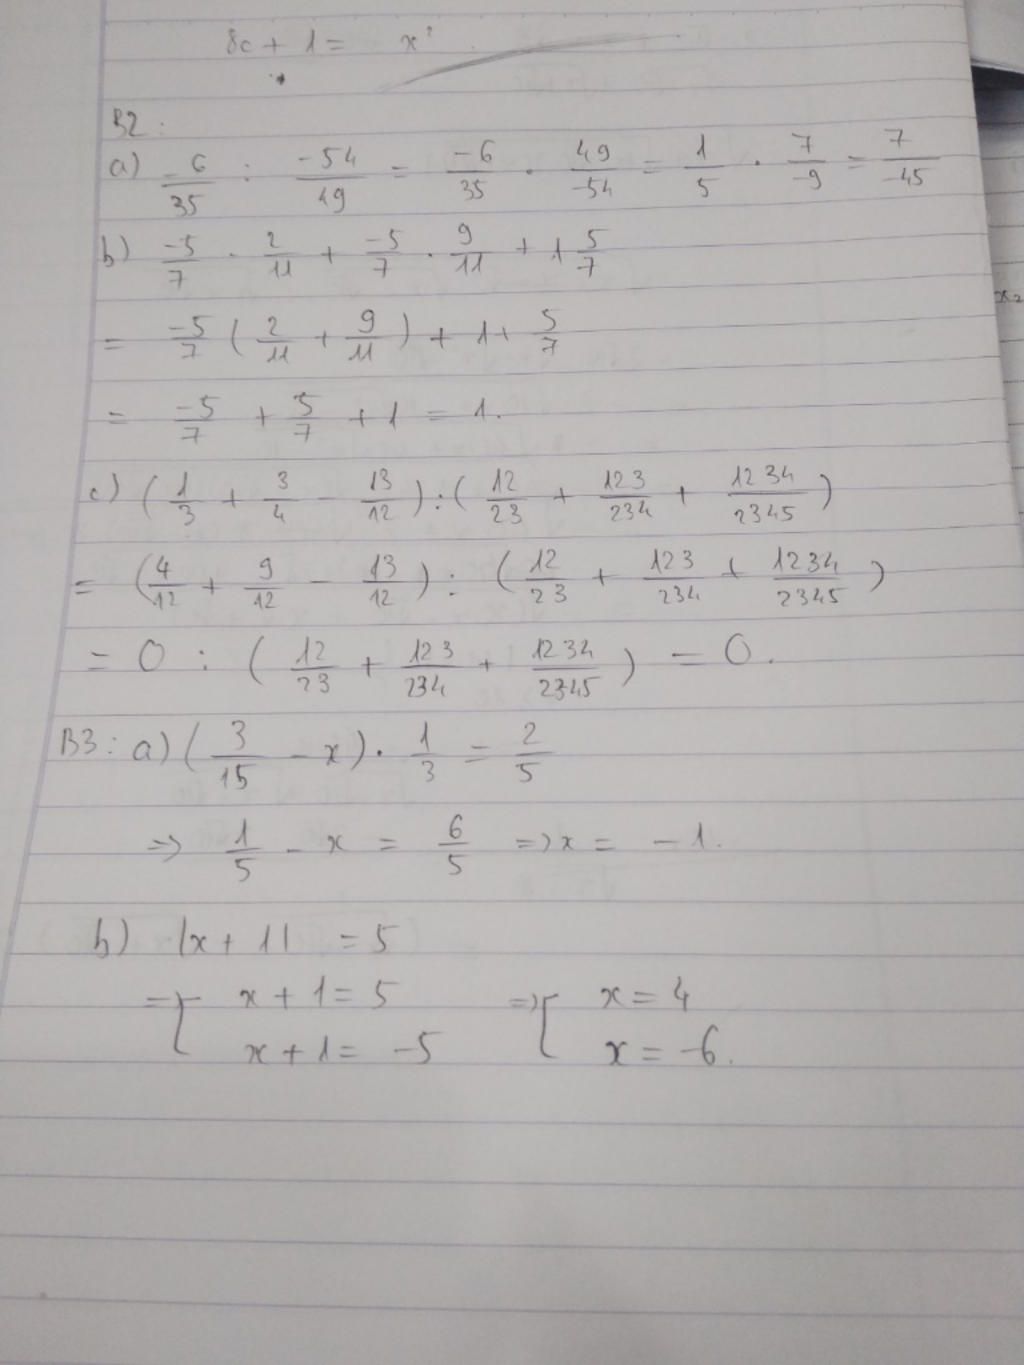 8c + 1 = x²
B2:
a) -6/35 : -54/49 = -6/35 . 49/-54 = 1/5 . 7/-9 = 7/-45
b) -5/7 . 2/11 + -5/7 . 9/11 + 1 5/7
= -5/7 (2/11 + 9/11) + 1 + 5/7
= -5/7 + 5/7 + 1 = 1.
c) (1/3 + 3/4 - 13/12) : (12/23 + 123/234 + 1234/2345)
= (4/12 + 9/12 - 13/12) : (12/23 + 123/234 + 1234/2345)
= 0 : (12/23 + 123/234 + 1234/2345) = 0.
B3: a) (3/15 - x) . 1/3 = 2/5
=> 1/5 - x = 6/5 => x = -1.
b) |x + 1| = 5
=> [ x + 1 = 5 => [ x = 4
x + 1 = -5 x = -6.